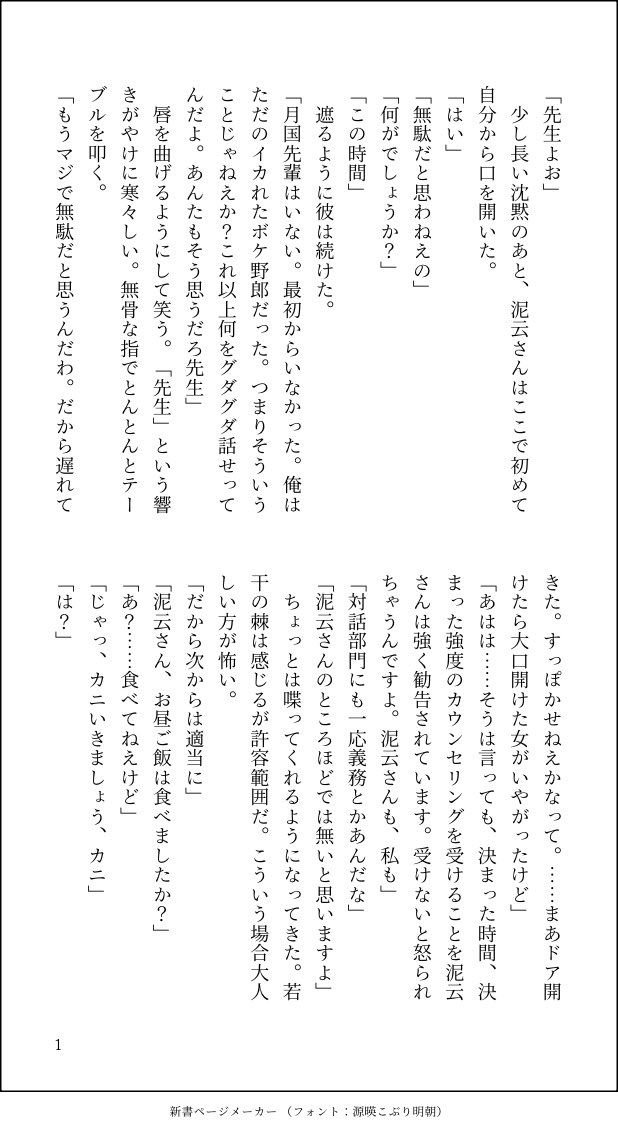 「先生よお」
　少し長い沈黙のあと、泥云さんはここで初めて
自分から口を開いた。
「はい」
「無駄だと思わねえの」
「何がでしょうか？」
「この時間」
　遮るように彼は続けた。
「月国先輩はいない。最初からいなかった。俺は
ただのイカれたボケ野郎だった。つまりそういう
ことじゃねえか？これ以上何をグダグダ話せって
んだよ。あんたもそう思うだろ先生」
　唇を曲げるようにして笑う。「先生」という響
きがやけに寒々しい。無骨な指でとんとんとテー
ブルを叩く。
「もうマジで無駄だと思うんだわ。だから遅れて
きた。すっぽかせねえかなって。……まあドア開
けたら大口開けた女がいやがったけど」
「あはは……そうは言っても、決まった時間、決
まった強度のカウンセリングを受けることを泥云
さんは強く勧告されています。受けないと怒られ
ちゃうんですよ。泥云さんも、私も」
「対話部門にも一応義務とかあんだな」
「泥云さんのところほどでは無いと思いますよ」
　ちょっとは喋ってくれるようになってきた。若
干の棘は感じるが許容範囲だ。こういう場合大人
しい方が怖い。
「だから次からは適当に」
「泥云さん、お昼ご飯は食べましたか？」
「あ？……食べてねえけど」
「じゃっ、カニいきましょう、カニ」
「は？」
1
新書ページメーカー（フォント：源暎こぶり明朝）